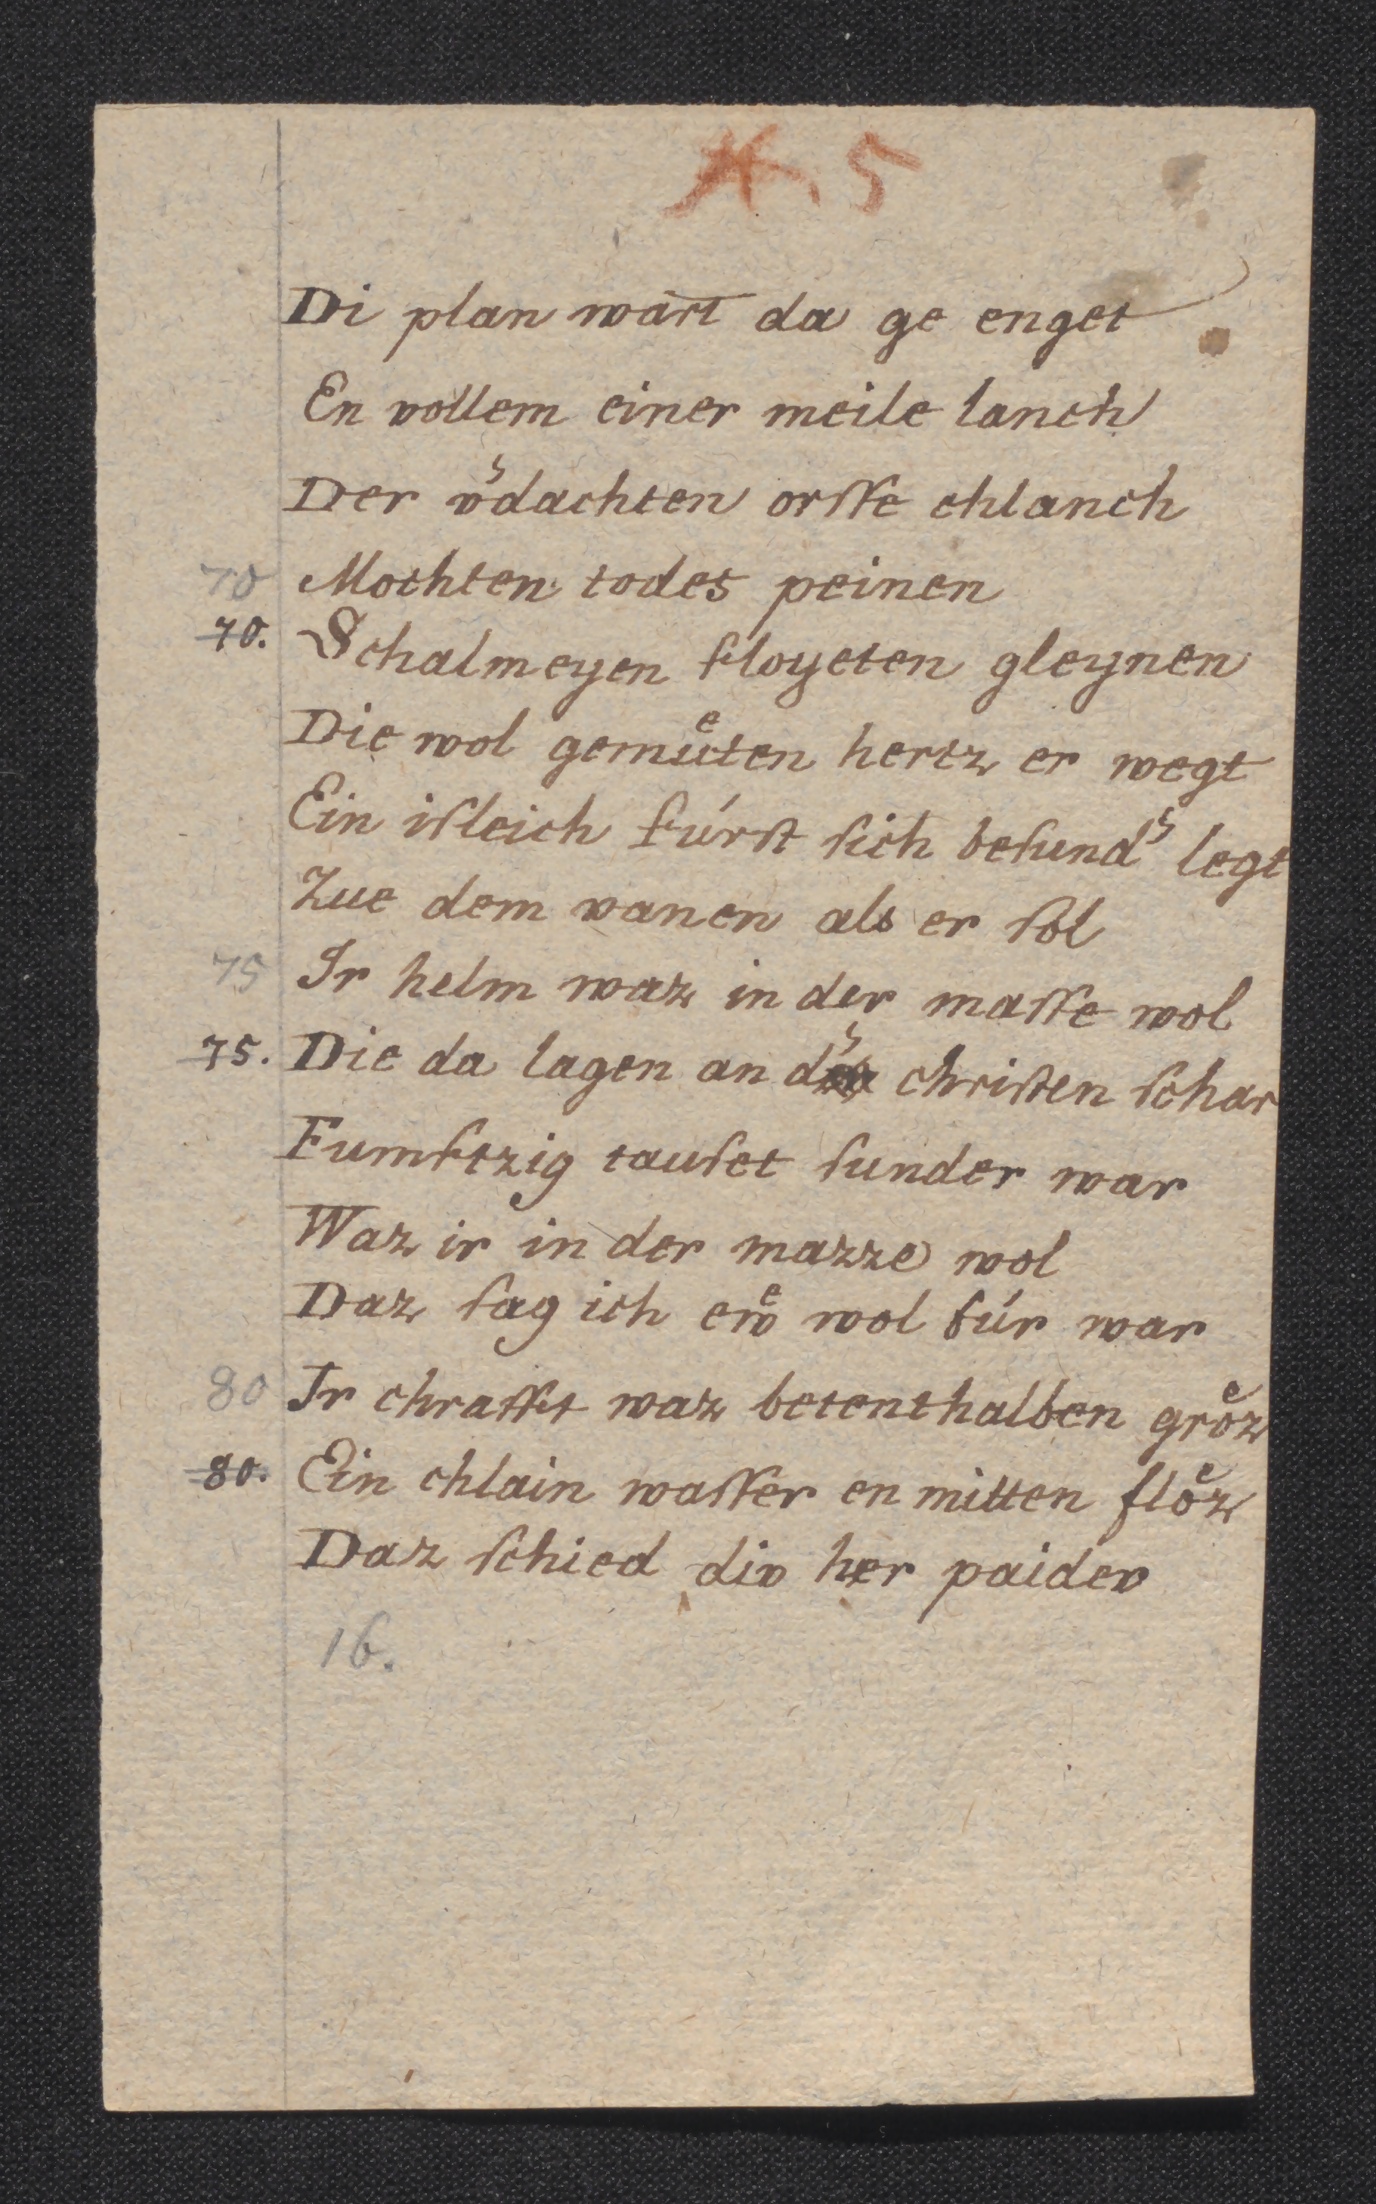 5
Di plan wart da ge enget
En vollem einer meile lanch
Der v᷑dachten orsse chlanch
70 Mochten todes peinen
70. Schalmeyen floyeten gleynen
Die wol gemuͤten hertz er wegt
Ein isleich fúrst sich besund᷑ legt
Zue dem vanen als er sol
75 Ir helm waz in der masse wol
75. Die da lagen an d᷑ christen schar
Fumftzig tauset sunder war
Waz ir in der mazze wol
Daz sag ich ew̉ wol fúr war
80 Ir chrafft waz betenthalben groͤz
80. Ein chlain wasser en mitten floͤz
Daz schied div her paider
16.